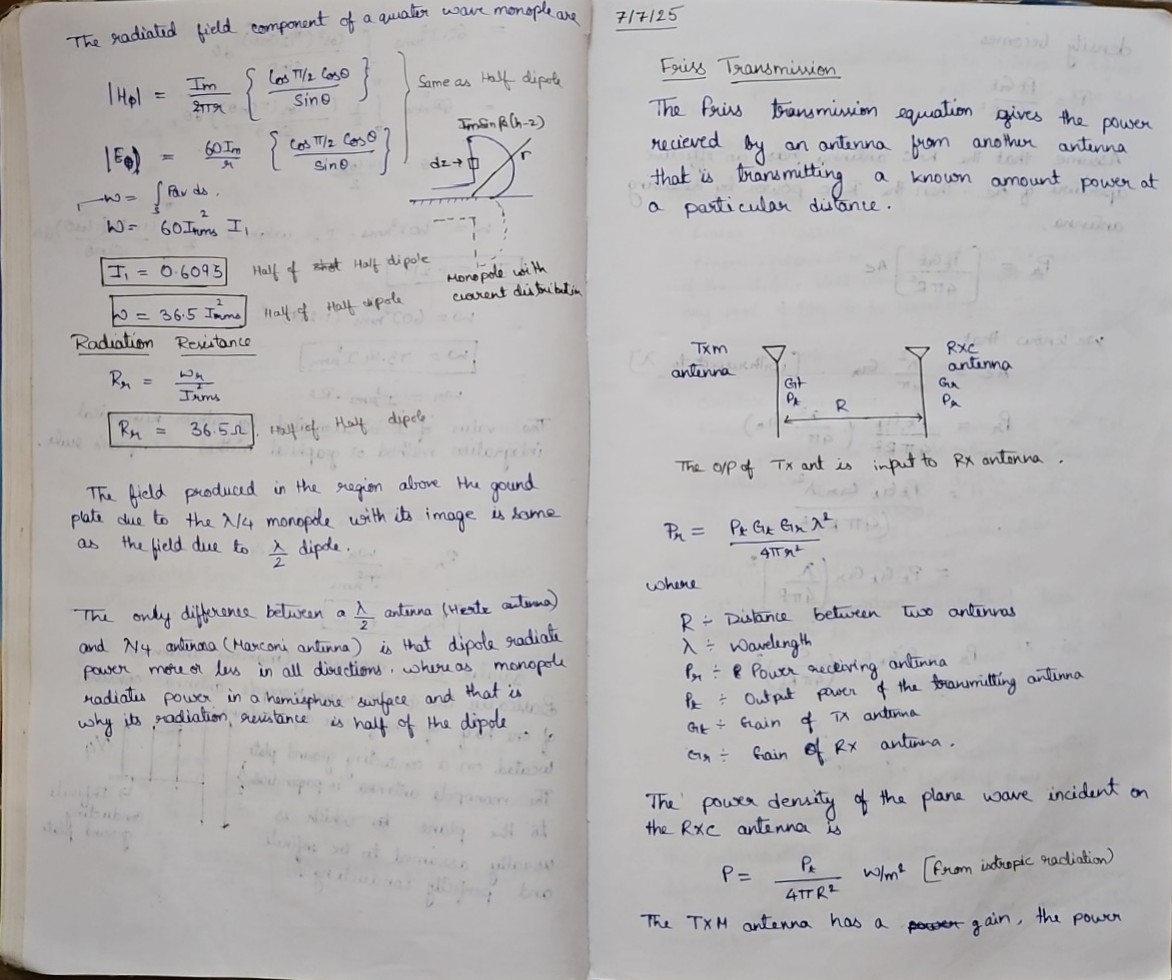 The radiated field component of a quater wave monople are
|Hφ| = Im/2πr { Cos π/2 Cosθ / Sinθ }
Same as Half dipole
|Eφ| = 60Im/r { Cos π/2 Cosθ / Sinθ }
W = ∫s Pav ds.
W = 60I²rms I₁.
I₁ = 0.6095 Half of Half dipole
W = 36.5 I²rms Half of Half dipole
ImSinβ(h-z)
dz→
r
Monopole with
current distributin
Radiation Resistance
Rr = Wr/I²rms
Rr = 36.5Ω. Half of Half dipole
The field produced in the region above the gound
plate due to the λ/4 monopole with its image is same
as the field due to λ/2 dipole.
The only difference between a λ/2 antenna (Hertz antenna)
and λ/4 antenna (Marconi antenna) is that dipole radiate
power more or less in all directions. where as monopole
radiates power in a hemisphere surface and that is
why its radiation, resistance is half of the dipole
7/7/25
Friss Transmission
The friss transmission equation gives the power
recieved by an antenna from another antenna
that is transmitting a known amount power at
a particular distance.
Txm
antenna
Gt
Pt
R
Rxc
antenna
Gr
Pr
The O/P of Tx ant is input to Rx antenna.
Pr = Pt Gt Gr λ² / 4πr²
where
R ÷ Distance between two antennas
λ ÷ Wavelength
Pr ÷ Power receiving antenna
Pt ÷ Output power of the transmitting antenna
Gt ÷ Gain of TX antenna
Gr ÷ Gain of Rx antenna.
The power density of the plane wave incident on
the RXC antenna is
P = Pt / 4πR² W/m² [from isotropic radiation)
The TXM antenna has a gain, the power